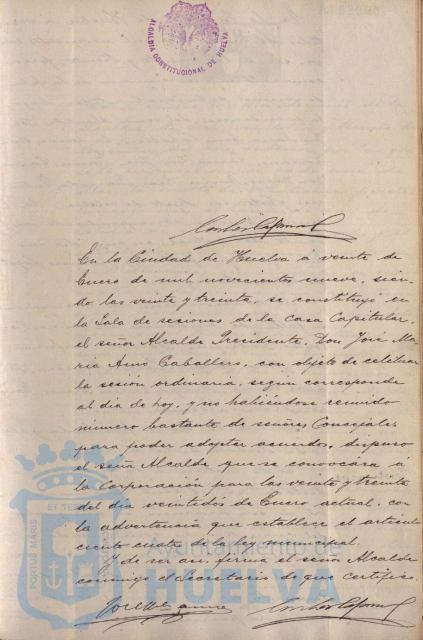 ALCALDIA CONSTITUCIONAL DE HUELVA
En la Ciudad de Huelva á veinte de
Enero de mil novecientos nueve, sien-
do las veinte y treinta, se constituyó en
la Sala de sesiones de la Casa Capitular,
el señor Alcalde Presidente, Don José Ma-
ria Amo Caballero, con objeto de celebrar
la sesión ordinaria, segun corresponde
al dia de hoy, y no habiéndose reunido
número bastante de señores Concejales
para poder adoptar acuerdos, dispuso
el señor Alcalde que se convocára á
la Corporación para las veinte y treinta
del dia veintidós de Enero actual, con
la advertencia que establece el articulo
ciento cuatro de la ley municipal.
Y de ser asi, firma el señor Alcalde
conmigo el Secretario de que certifico.
José Mª Amo
PORTUS MARIS ET TE
Ayuntamiento de
HUELVA